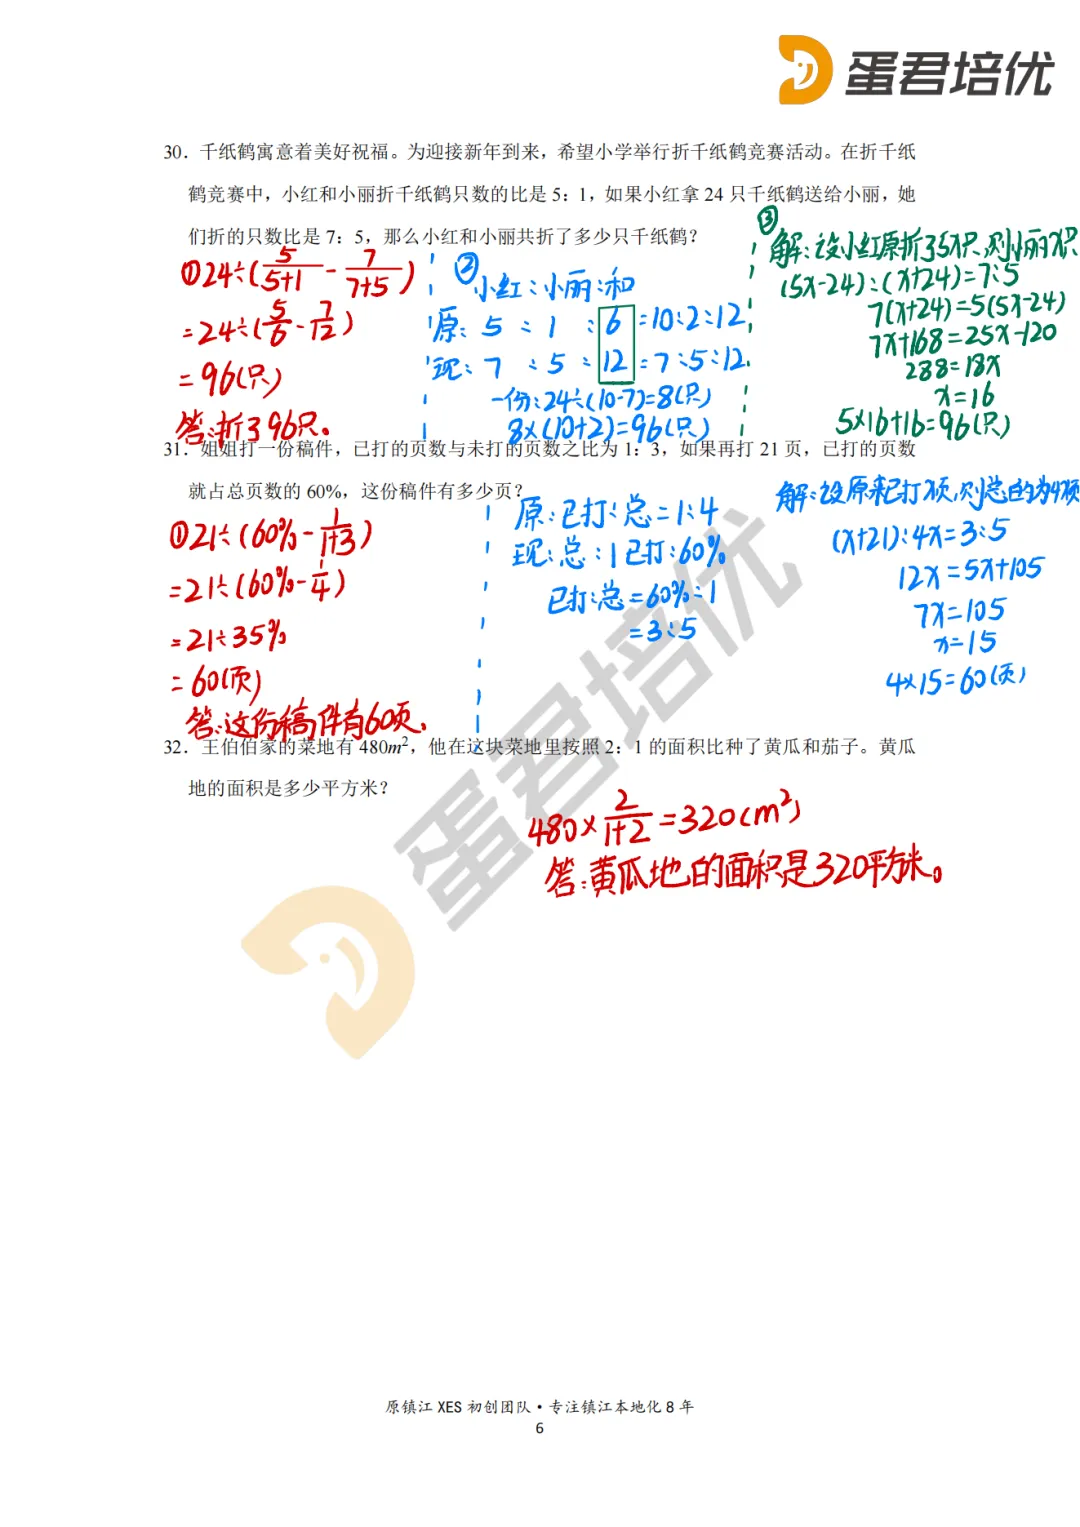 蛋君培优
30. 千纸鹤寓意着美好祝福。为迎接新年到来，希望小学举行折千纸鹤竞赛活动。在折千纸
鹤竞赛中，小红和小丽折千纸鹤只数的比是 5：1，如果小红拿 24 只千纸鹤送给小丽，她
们折的只数比是 7：5，那么小红和小丽共折了多少只千纸鹤？
①24÷(5/5+1 - 7/7+5)
=24÷(5/6 - 7/12)
=96(只)
答:折了96只。
②
小红:小丽:和
原: 5 : 1 : 6 =10:2:12
现: 7 : 5 : 12 =7:5:12
一份:24÷(10-7)=8(只)
8×(10+2)=96(只)
③
解:设小红原折了5x只,则小丽x只
(5x-24):(x+24)=7:5
7(x+24)=5(5x-24)
7x+168=25x-120
288=18x
x=16
5×16+16=96(只)
31. 姐姐打一份稿件，已打的页数与未打的页数之比为 1：3，如果再打 21 页，已打的页数
就占总页数的 60%，这份稿件有多少页？
①21÷(60%-1/1+3)
=21÷(60%-1/4)
=21÷35%
=60(页)
答:这份稿件有60页.
原:已打:总=1:4
现:总:1 已打:60%
已打:总=60%:1
=3:5
解:设原来已打x页,则总的为4x页
(x+21):4x=3:5
12x=5x+105
7x=105
x=15
4×15=60(页)
32. 王伯伯家的菜地有 480m²，他在这块菜地里按照 2：1 的面积比种了黄瓜和茄子。黄瓜
地的面积是多少平方米？
480×2/1+2=320(m²)
答:黄瓜地的面积是320平方米。
蛋君培优
原镇江 XES 初创团队·专注镇江本地化 8 年
6